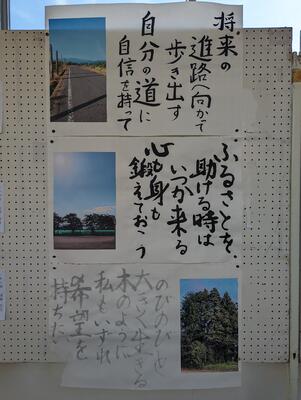 将来の
進路へ向かて
歩き出す
自分の道に
自信を持って
ふるさとを、
助ける時は
いつか来る
心も身も
鍛えておこう
のびのびと
大きく生きる
木のように
私もいずれ
希望を
持ちたい